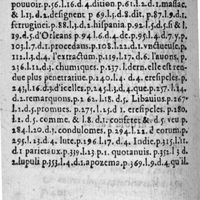 pouuoir. p.56.l.16.d.aition. p.62.l.21.d.mastac,
& l.23.d.2.designent p.69.l.3.d.8.dit. p.87.l.9.d.1.
ferrugine. p.88.l.3.d.2.hispania p.92.l.5.d.5.& l.
19.d.5.d'Orleans p.94.l.6.d.4.de. p.95.d.4.d.7.y. p.
103.l.7.d.1.procedans. p.108.l.22.d.1.vnctueuse. p.
111.l.3.d.4.l'extractum. p.119.l.17.d.6.l'auons, p.
236.l.12.d.3.chumiques. p.137.l.dern.elle est ren-
due plus penetratiue. p.140.l.4. d.4.eresipeles. p.
243,l.16.d.3.d'icelles p.245.l.3.d.4.que. p.257.l.14.
d.2.remarquons. p.2 62.l.18.d.5. Libauius. p.267
l.1.d.3.promos. p.275.l.15 d.1. eresipeles. p.280.
l.2.d.5. comme. & l.8. d.1. confetes & d.5. veu p.
284.l.20.d.3. condulomes. p.294.l.12.d eorum. p.
295.l.13.d.4. lute. p.296 l.17.d.4. Indie. p.315.l.11.
d 1 parietaux. p.339.l.23 p.1. quotanuis. p.352.l.3 d
2.lupuli p.353.l.4.d.1.apozema. p.369.l.9.d.4.qu'il.